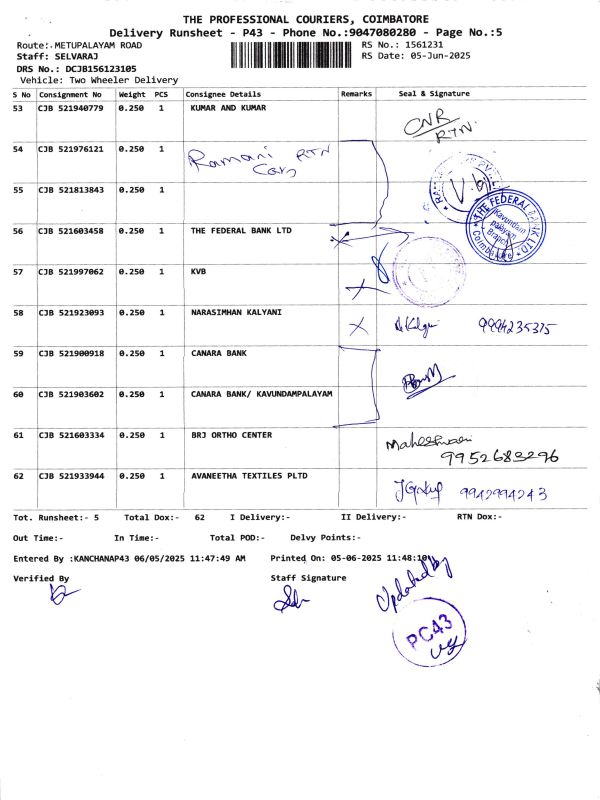 THE PROFESSIONAL COURIERS, COIMBATORE
Delivery Runsheet - P43 - Phone No.:9047080280 - Page No.:5
Route: METUPALAYAM ROAD RS No.: 1561231
Staff: SELVARAJ RS Date: 05-Jun-2025
DRS No.: DCJB156123105
Vehicle: Two Wheeler Delivery
S No Consignment No Weight PCS Consignee Details Remarks Seal & Signature
53 CJB 521940779 0.250 1 KUMAR AND KUMAR CNR
RTN
54 CJB 521976121 0.250 1 Ramani RTN
Cars
55 CJB 521813843 0.250 1
56 CJB 521603458 0.250 1 THE FEDERAL BANK LTD
THE FEDERAL BANK LTD
Kavundam
palayam
Branch
Coimbatore
57 CJB 521997062 0.250 1 KVB
58 CJB 521923093 0.250 1 NARASIMHAN KALYANI 9994235375
59 CJB 521900918 0.250 1 CANARA BANK
60 CJB 521903602 0.250 1 CANARA BANK/ KAVUNDAMPALAYAM
61 CJB 521603334 0.250 1 BRJ ORTHO CENTER Maheshwari
9952683296
62 CJB 521933944 0.250 1 AVANEETHA TEXTILES PLTD 9942994243
Tot. Runsheet:- 5 Total Dox:- 62 I Delivery:- II Delivery:- RTN Dox:-
Out Time:- In Time:- Total POD:- Delvy Points:-
Entered By :KANCHANAP43 06/05/2025 11:47:49 AM Printed On: 05-06-2025 11:48:10
Verified By Staff Signature
Updated by
PC43